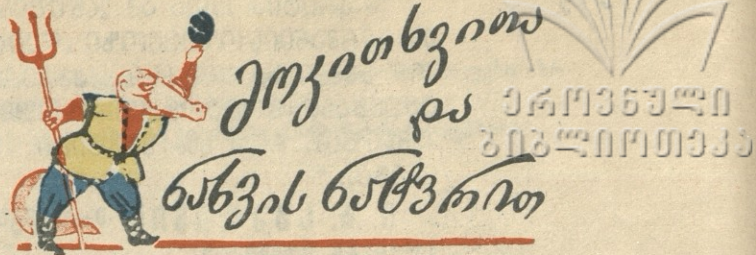 მოკითხვითა
და
ნახვის ნატვრით
ეროვნული
ბიბლიოთეკა